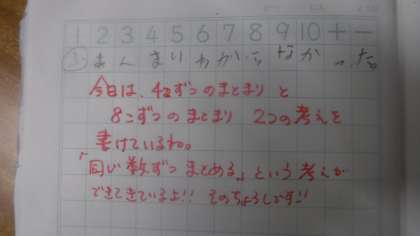 1 2 3 4 5 6 7 8 9 10 + −
今日は、4こずつのまとまりと
8こずつのまとまり 2つの考えを
書けているね。
「同じ数ずつまとめる」という考えが
できてきているよ!! そのちょうしです!!